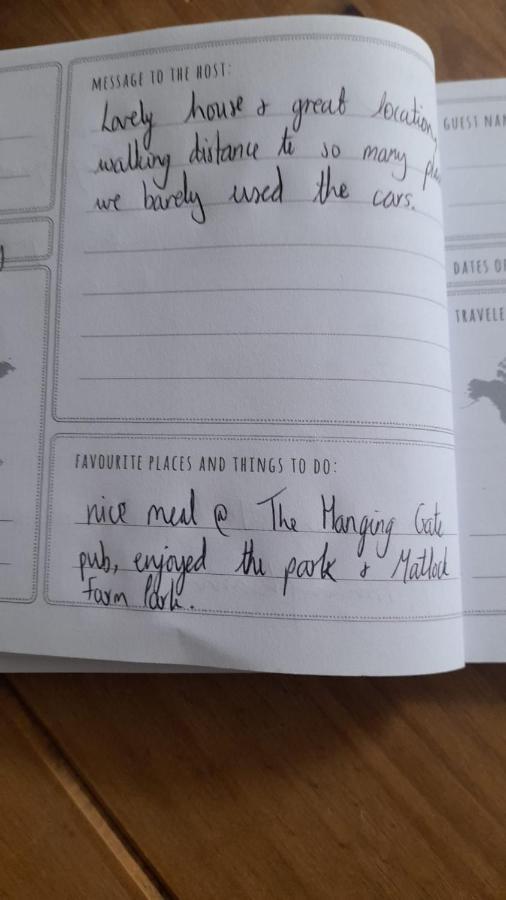 MESSAGE TO THE HOST:
Lovely house & great location,
walking distance to so many
we barely used the cars.
FAVOURITE PLACES AND THINGS TO DO:
nice meal @ The Hanging Gate
pub, enjoyed the park & Matlock
farm Park.
GUEST NAM
DATES OF
TRAVELE